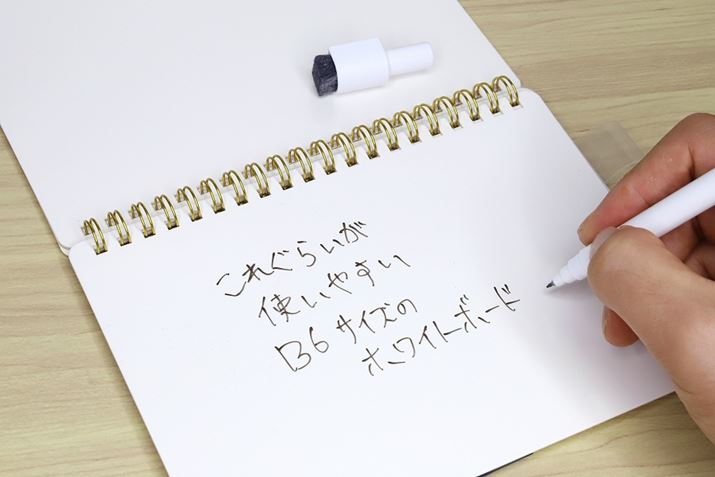 これぐらいが
使いやすい
B6サイズの
ホワイトボード